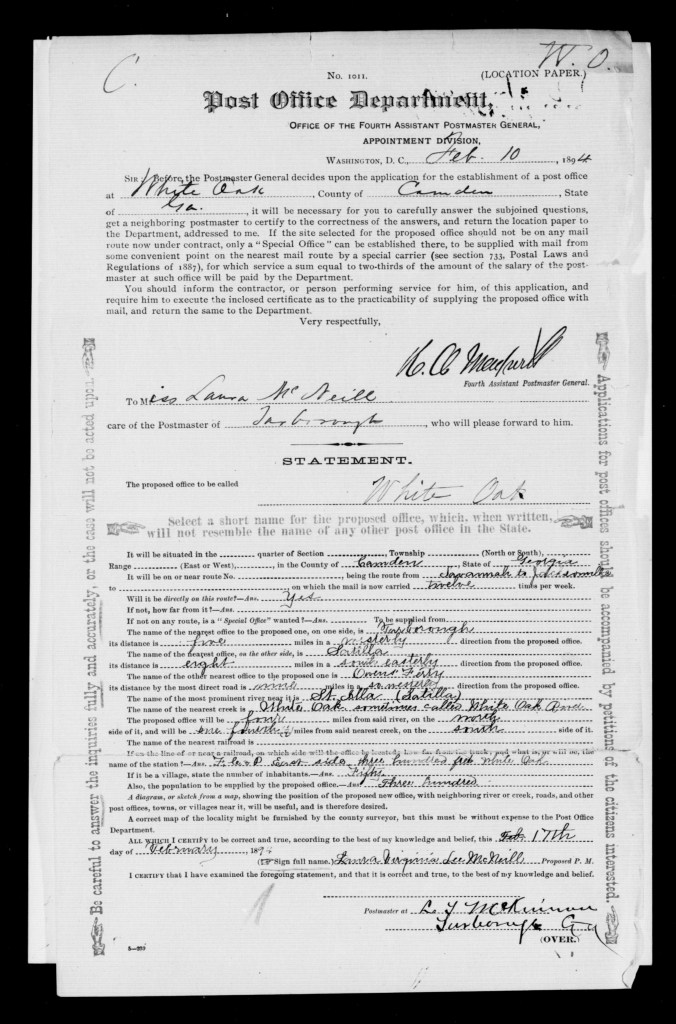 C.
W. O.
No. 1011.
(LOCATION PAPER.)
Post Office Department,
OFFICE OF THE FOURTH ASSISTANT POSTMASTER GENERAL,
APPOINTMENT DIVISION,
WASHINGTON, D. C., Feb. 10, 1894
SIR: Before the Postmaster General decides upon the application for the establishment of a post office
at White Oak, County of Camden, State
of Ga., it will be necessary for you to carefully answer the subjoined questions,
get a neighboring postmaster to certify to the correctness of the answers, and return the location paper to
the Department, addressed to me. If the site selected for the proposed office should not be on any mail
route now under contract, only a "Special Office" can be established there, to be supplied with mail from
some convenient point on the nearest mail route by a special carrier (see section 733, Postal Laws and
Regulations of 1887), for which service a sum equal to two-thirds of the amount of the salary of the post-
master at such office will be paid by the Department.
You should inform the contractor, or person performing service for him, of this application, and
require him to execute the inclosed certificate as to the practicability of supplying the proposed office with
mail, and return the same to the Department.
Very respectfully,
Fourth Assistant Postmaster General.
To Miss Laura McNeill
care of the Postmaster of Tarborough, who will please forward to him.
STATEMENT.
The proposed office to be called White Oak
Select a short name for the proposed office, which, when written,
will not resemble the name of any other post office in the State.
It will be situated in the quarter of Section, Township (North or South),
Range (East or West), in the County of Camden, State of Georgia
It will be on or near route No. , being the route from Savannah to Jacksonville
to , on which the mail is now carried twelve times per week.
Will it be directly on this route?—Ans. Yes.
If not, how far from it?—Ans.
If not on any route, is a "Special Office" wanted?—Ans. To be supplied from
The name of the nearest office to the proposed one, on one side, is Tarborough
its distance is five miles in a westerly direction from the proposed office.
The name of the nearest office, on the other side, is Satilla
its distance is eight miles in a south easterly direction from the proposed office.
The name of the other nearest office to the proposed one is Owens Ferry
its distance by the most direct road is nine miles in a direction from the proposed office.
The name of the most prominent river near it is St. Illa (Satilla)
The name of the nearest creek is White Oak sometimes called White Oak River
The proposed office will be four miles from said river, on the north
side of it, and will be one fourth miles from said nearest creek, on the south side of it.
The name of the nearest railroad is
If on the line of or near a railroad, on which side will the office be located; how far from the track; and what is, or will be, the
name of the station?—Ans. East side, three hundred feet, White Oak
If it be a village, state the number of inhabitants.—Ans. Fifty
Also, the population to be supplied by the proposed office.—Ans. Three hundred
A diagram, or sketch from a map, showing the position of the proposed new office, with neighboring river or creek, roads, and other
post offices, towns, or villages near it, will be useful, and is therefore desired.
A correct map of the locality might be furnished by the county surveyor, but this must be without expense to the Post Office
Department.
ALL WHICH I CERTIFY to be correct and true, according to the best of my knowledge and belief, this 17th
day of February, 1894
(Sign full name.) Laura Virginia Lee McNeill Proposed P. M.
I CERTIFY that I have examined the foregoing statement, and that it is correct and true, to the best of my knowledge and belief.
L. T. McKinnon
Postmaster at Tarborough Ga
(OVER.)
Be careful to answer the inquiries fully and accurately, or the case will not be acted upon.
Applications for post offices should be accompanied by petitions of the citizens interested.